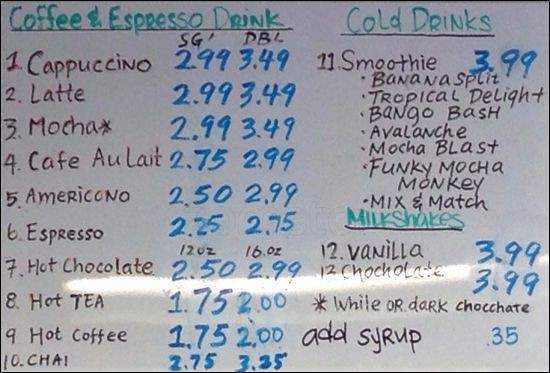 Coffee & Espresso Drink
SG' DBL
1. Cappuccino 2.99 3.49
2. Latte 2.99 3.49
3. Mocha* 2.99 3.49
4. Cafe Au Lait 2.75 2.99
5. Americono 2.50 2.99
6. Espresso 2.25 2.75
12oz 16.oz
7. Hot Chocolate 2.50 2.99
8. Hot TEA 1.75 2.00
9 Hot Coffee 1.75 2.00
10. CHAI 2.75 3.25
Cold Drinks
11. Smoothie 3.99
• Banana Split
• Tropical Delight
• Bango Bash
• Avalanche
• Mocha Blast
• Funky Mocha
Monkey
• Mix & Match
Milkshakes
12. Vanilla 3.99
13 Chocholate 3.99
* While OR dark chocchate
add syrup .35